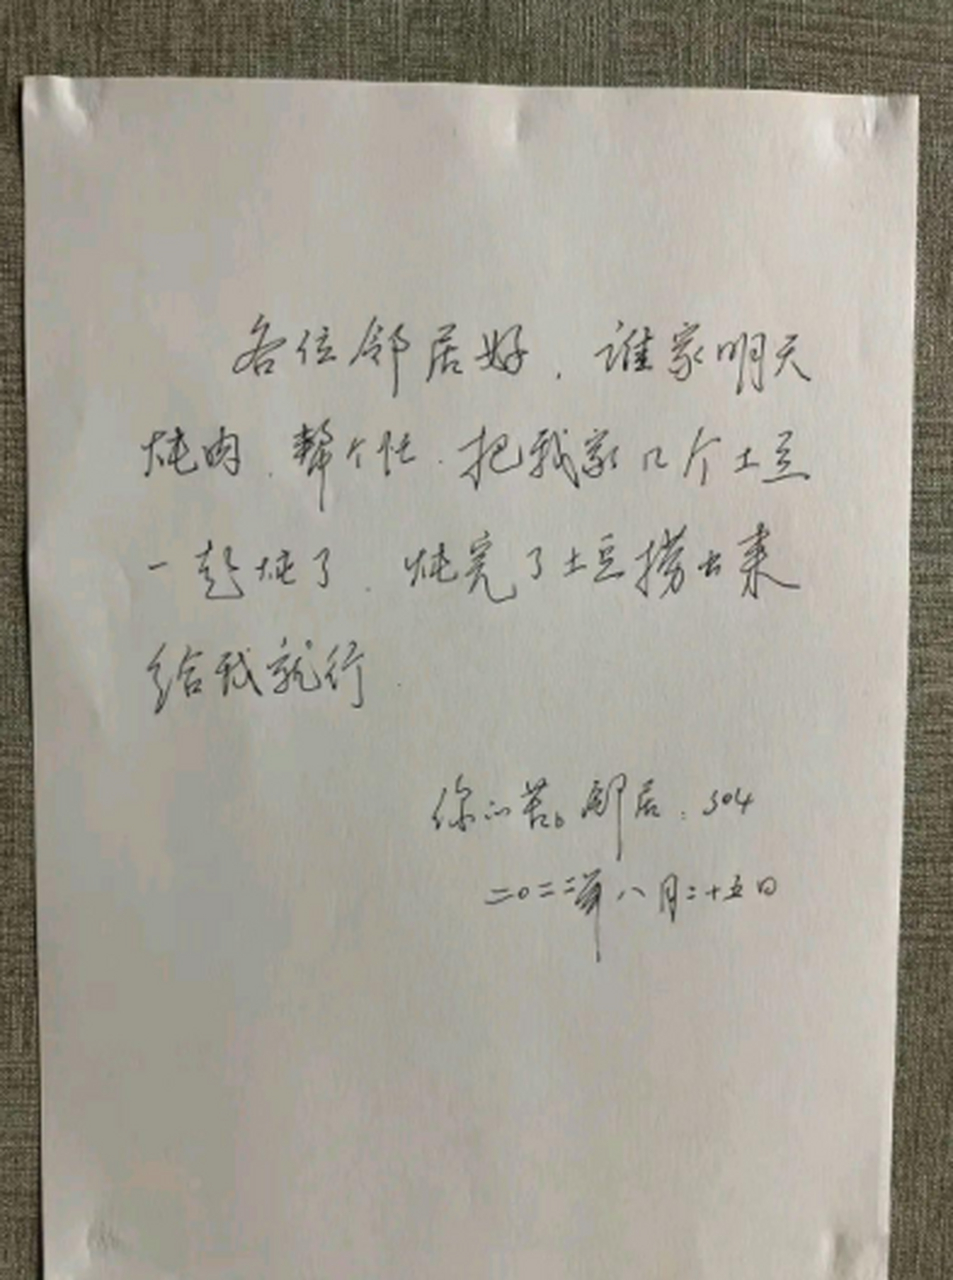 各位邻居好，谁家明天
炖肉，帮个忙，把我家几个土豆
一起炖了，炖完了土豆捞出来
给我就行.
你的芳邻居：504
二〇二二年八月二十五日